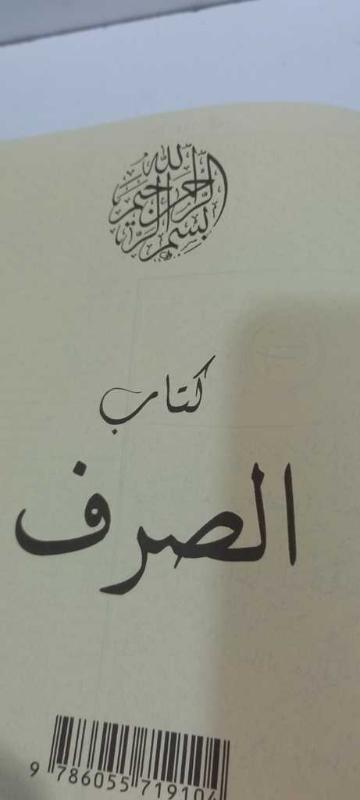 بسم الله الرحمن الرحيم
كتاب
الصرف
9 786055 719104